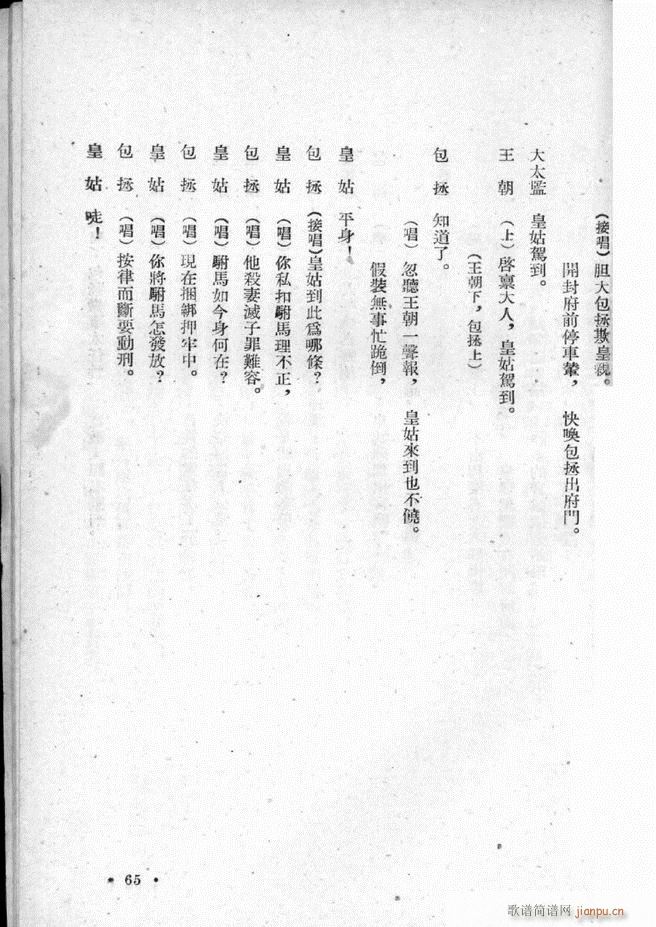 （接唱）胆大包拯欺皇親。
開封府前停車輦，　快喚包拯出府門。
大太監　皇姑駕到。
王　朝　（上）啓禀大人，皇姑駕到。
（王朝下，包拯上）
包　拯　知道了。
（唱）忽聽王朝一聲報，　皇姑來到也不饒。
假裝無事忙跪倒，
皇　姑　平身！
包　拯　（接唱）皇姑到此爲哪條？
皇　姑　（唱）你私扣駙馬理不正，
包　拯　（唱）他殺妻滅子罪難容。
皇　姑　（唱）駙馬如今身何在？
包　拯　（唱）現在捆綁押牢中。
皇　姑　（唱）你將駙馬怎發放？
包　拯　（唱）按律而斷要動刑。
皇　姑　唗！
• 65 •
歌谱简谱网 jianpu.cn